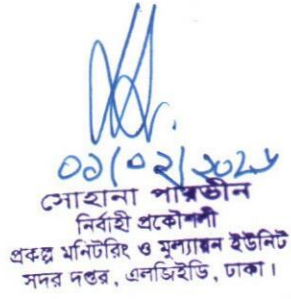 ০১/০২/২০২৬
সোহানা পারভীন
নির্বাহী প্রকৌশলী
প্রকল্প মনিটরিং ও মূল্যায়ন ইউনিট
সদর দপ্তর, এলজিইডি, ঢাকা।